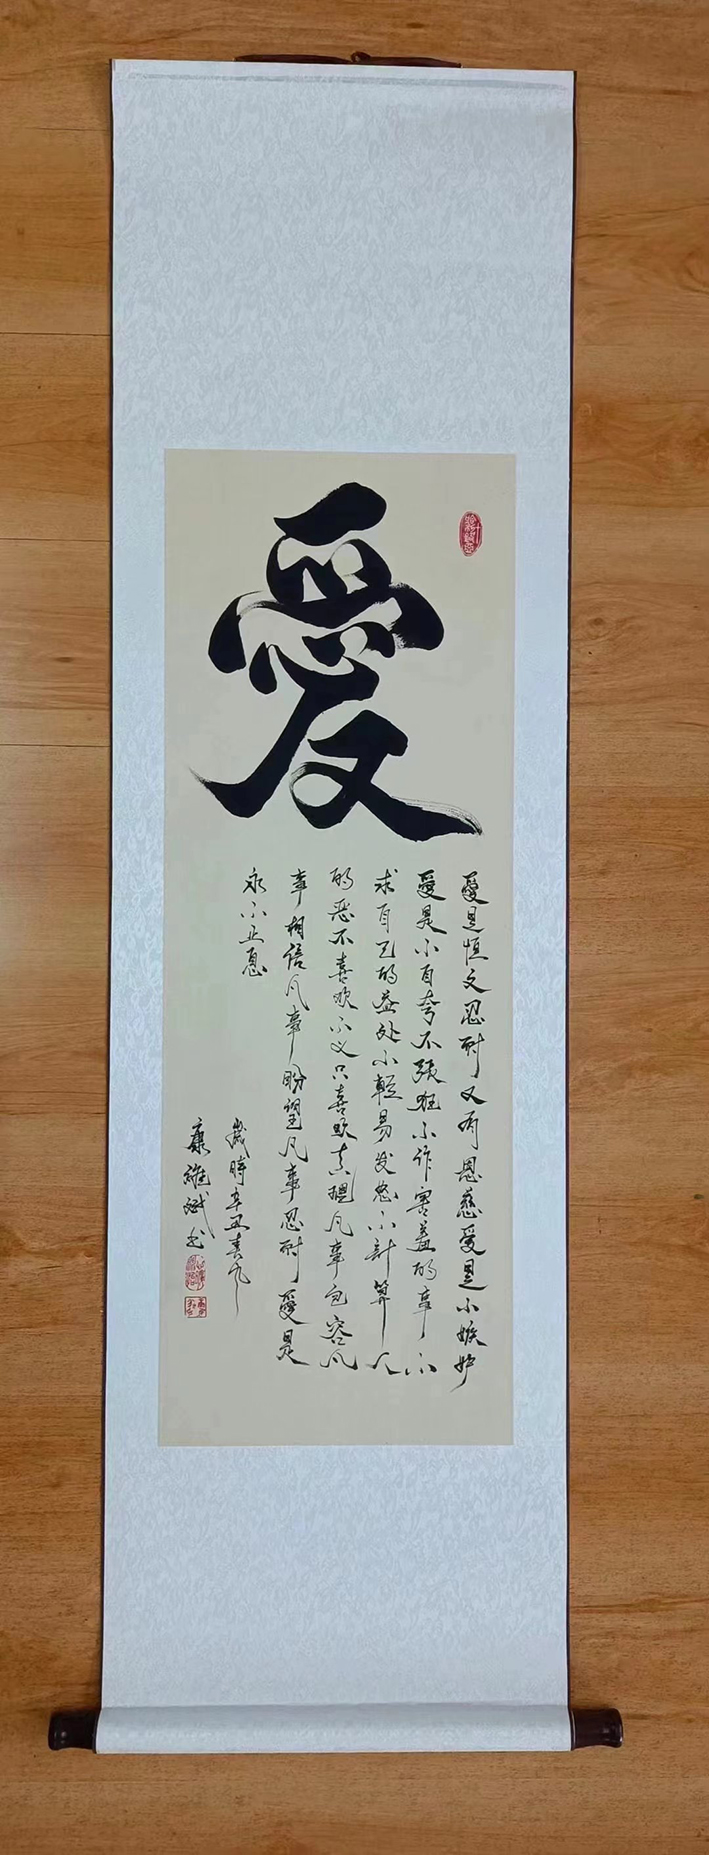 愛
愛是恒久忍耐又有恩慈愛是不嫉妒
愛是不自夸不張狂不作害羞的事不
求自己的益处不輕易发怒不計算人
的恶不喜欢不义只喜欢真理凡事包容凡
事相信凡事盼望凡事忍耐愛是
永不止息
歲時辛丑春
康維斌书